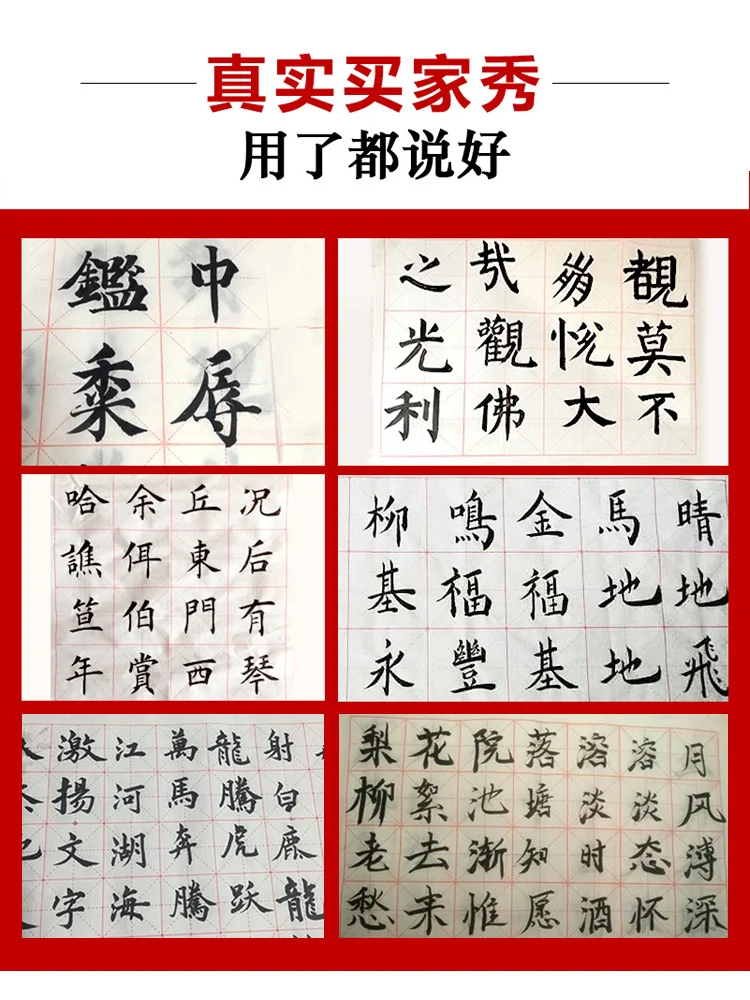 真实买家秀
用了都说好
鑑中
辱
之哉覩
光觀悅莫
利佛大不
哈余丘况
譙佴東后
笪伯門有
年賞西琴
柳鳴金馬晴
基福福地地
永豐基地飛
激江萬龍射
揚河馬騰白
文湖奔虎鹿
字海騰跃龍
梨花院落溶溶月
柳絮池塘淡淡风
老去渐知时态溥
愁来惟愿酒怀深